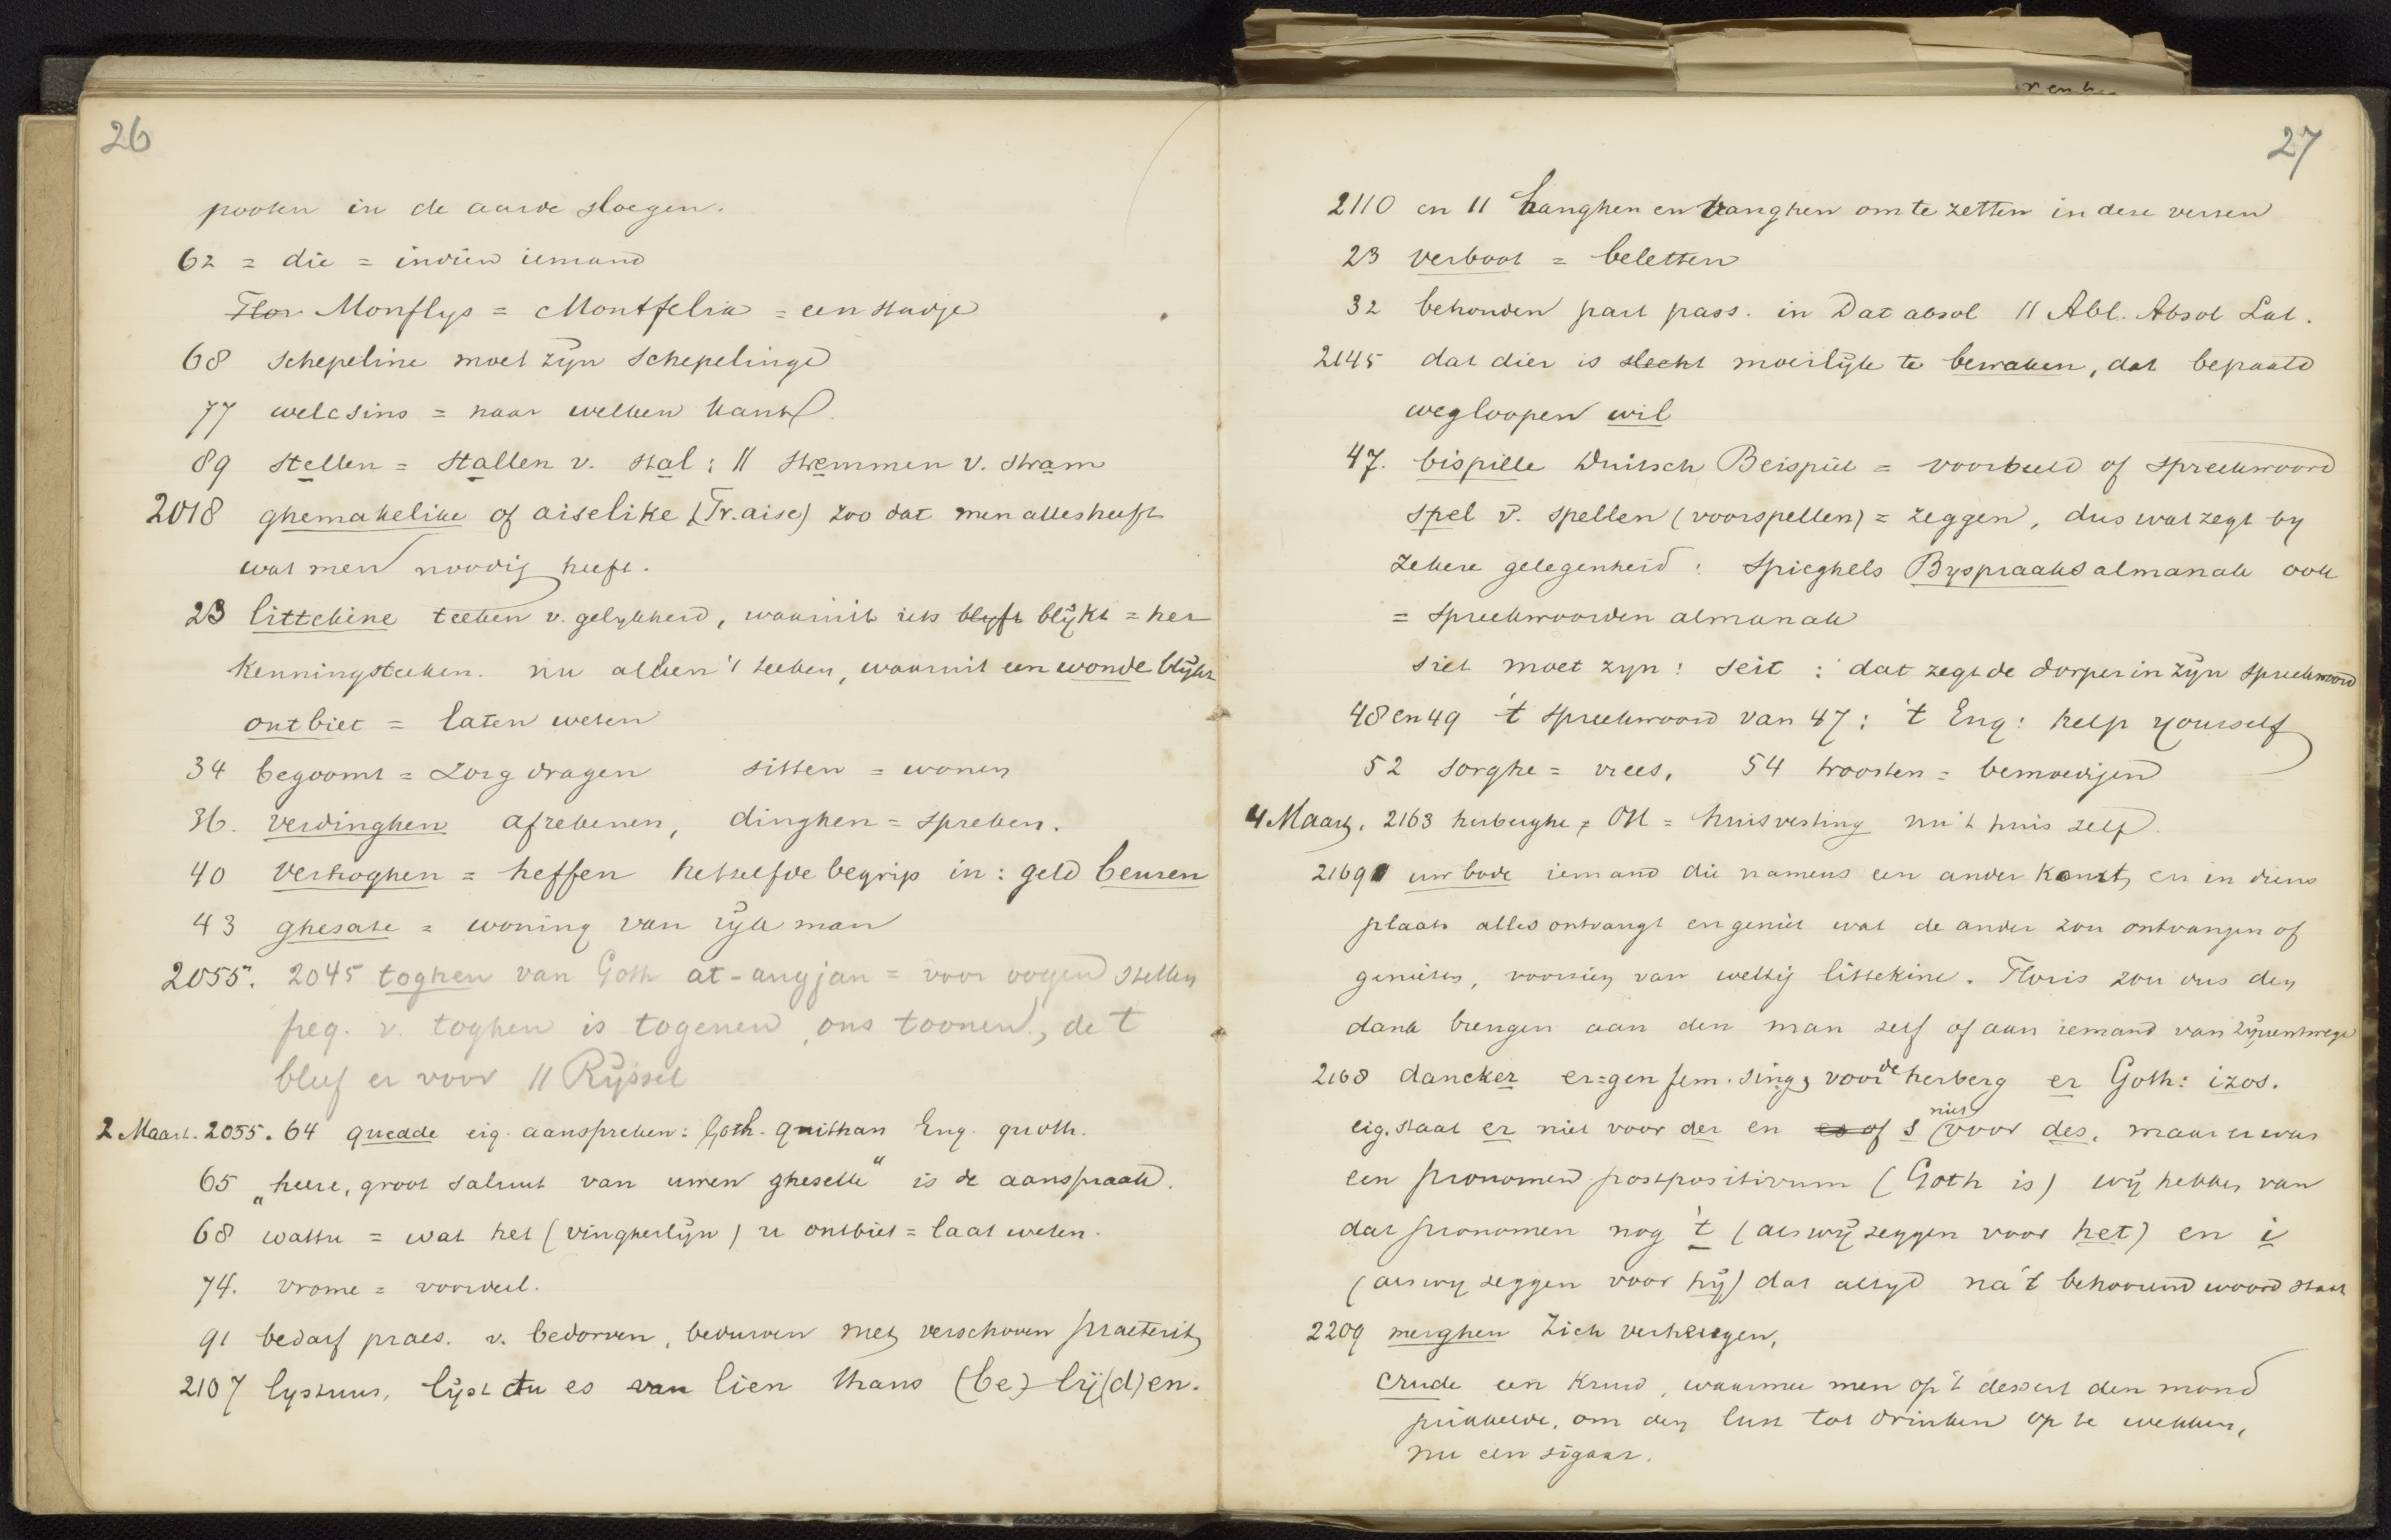 26
pooten in de aarde sloegen.
62 = die = indien iemand
Flor. Monflys = Montfelix = een stadje
68 schepeline moet zijn schepelinge
77 welcsins = naar welken kant
89 stellen = stallen v. stal; || stremmen v. stram
2018 ghemakelike of aiselike (Fr. aise) zoo dat men alles heeft
wat men noodig heeft.
23 littekine teeken v. gelykheid, waaruit iets blyft blijkt = her
kenningsteeken. nu alleen 't teeken, waaruit een wonde blijkt
ontbiet = laten weten
34 begoomt = zorg dragen sitten = wonen
36. verdinghen afrekenen, dinghen = spreken.
40 verhoghen = heffen hetzelfde begrip in: geld beuren
43 ghesate = woning van rijk man
2055. 2045 toghen van Goth at-augjan = voor oogen stellen
freq. v. toghen is togenen, ons toonen, de t
bleef er voor || Rijssel
2 Maart. 2055. 64 quedde eig. aanspreken: Goth. quithan Eng. quoth.
65 „heere, groot saluut van uwen gheselle" is de aanspraak.
68 wattu = wat het (vingherlijn) u ontbiet = laat weten.
74. vrome = voordeel.
91 bedarf praes. v. bedorven, bedurven met verschoven praeterit.
2107 lystuus, lijst du es van lien thans (be)-lij(d)en.
27
2110 en 11 hanghen en vanghen om te zetten in deze verzen
23 verboot = beletten
32 behouden part pass. in Dat absol || Abl. Absol Lat.
2145 dat dier is slecht moeilijk te bewaken, dat bepaald
wegloopen wil
47. bispille Duitsch Beispiel = voorbeeld of spreekwoord
spel v. spellen (voorspellen) = zeggen, dus wat zegt by
zekere gelegenheid: Spieghels Byspraaks almanak ook
= spreekwoorden almanak
siet moet zyn: seit: dat zegt de dorper in zijn spreekwoord
48 en 49 't spreekwoord van 47: 't Eng: help yourself
52 sorghe = vrees, 54 troosten = bemoedigen
4 Maart. 2163 herberghe = OH = huisvesting nu 't huis zelf
2169 uw bode iemand die namens een ander komt, en in diens
plaats alles ontvangt en geniet wat de ander zou ontvangen of
genieten, voorzien van wettig littekine. Floris zou dus den
dank brengen aan den man zelf of aan iemand van zijnentwege
2168 dancker er=gen fem. sing, voor de herberg er Goth: izos.
eig. staat er niet voor der en es of s niet voor des, maar er was
een pronomen postpositivum (Goth is) wij hebben van
dat pronomen nog 't (als wij zeggen voor het) en i
(als wy zeggen voor hij) dat altyd na 't behoorend woord staat
2209 merghen zich verheugen,
crude een kruid, waarmee men op 't dessert den mond
prikkelde, om den lust tot drinken op te wekken,
nu een sigaar.